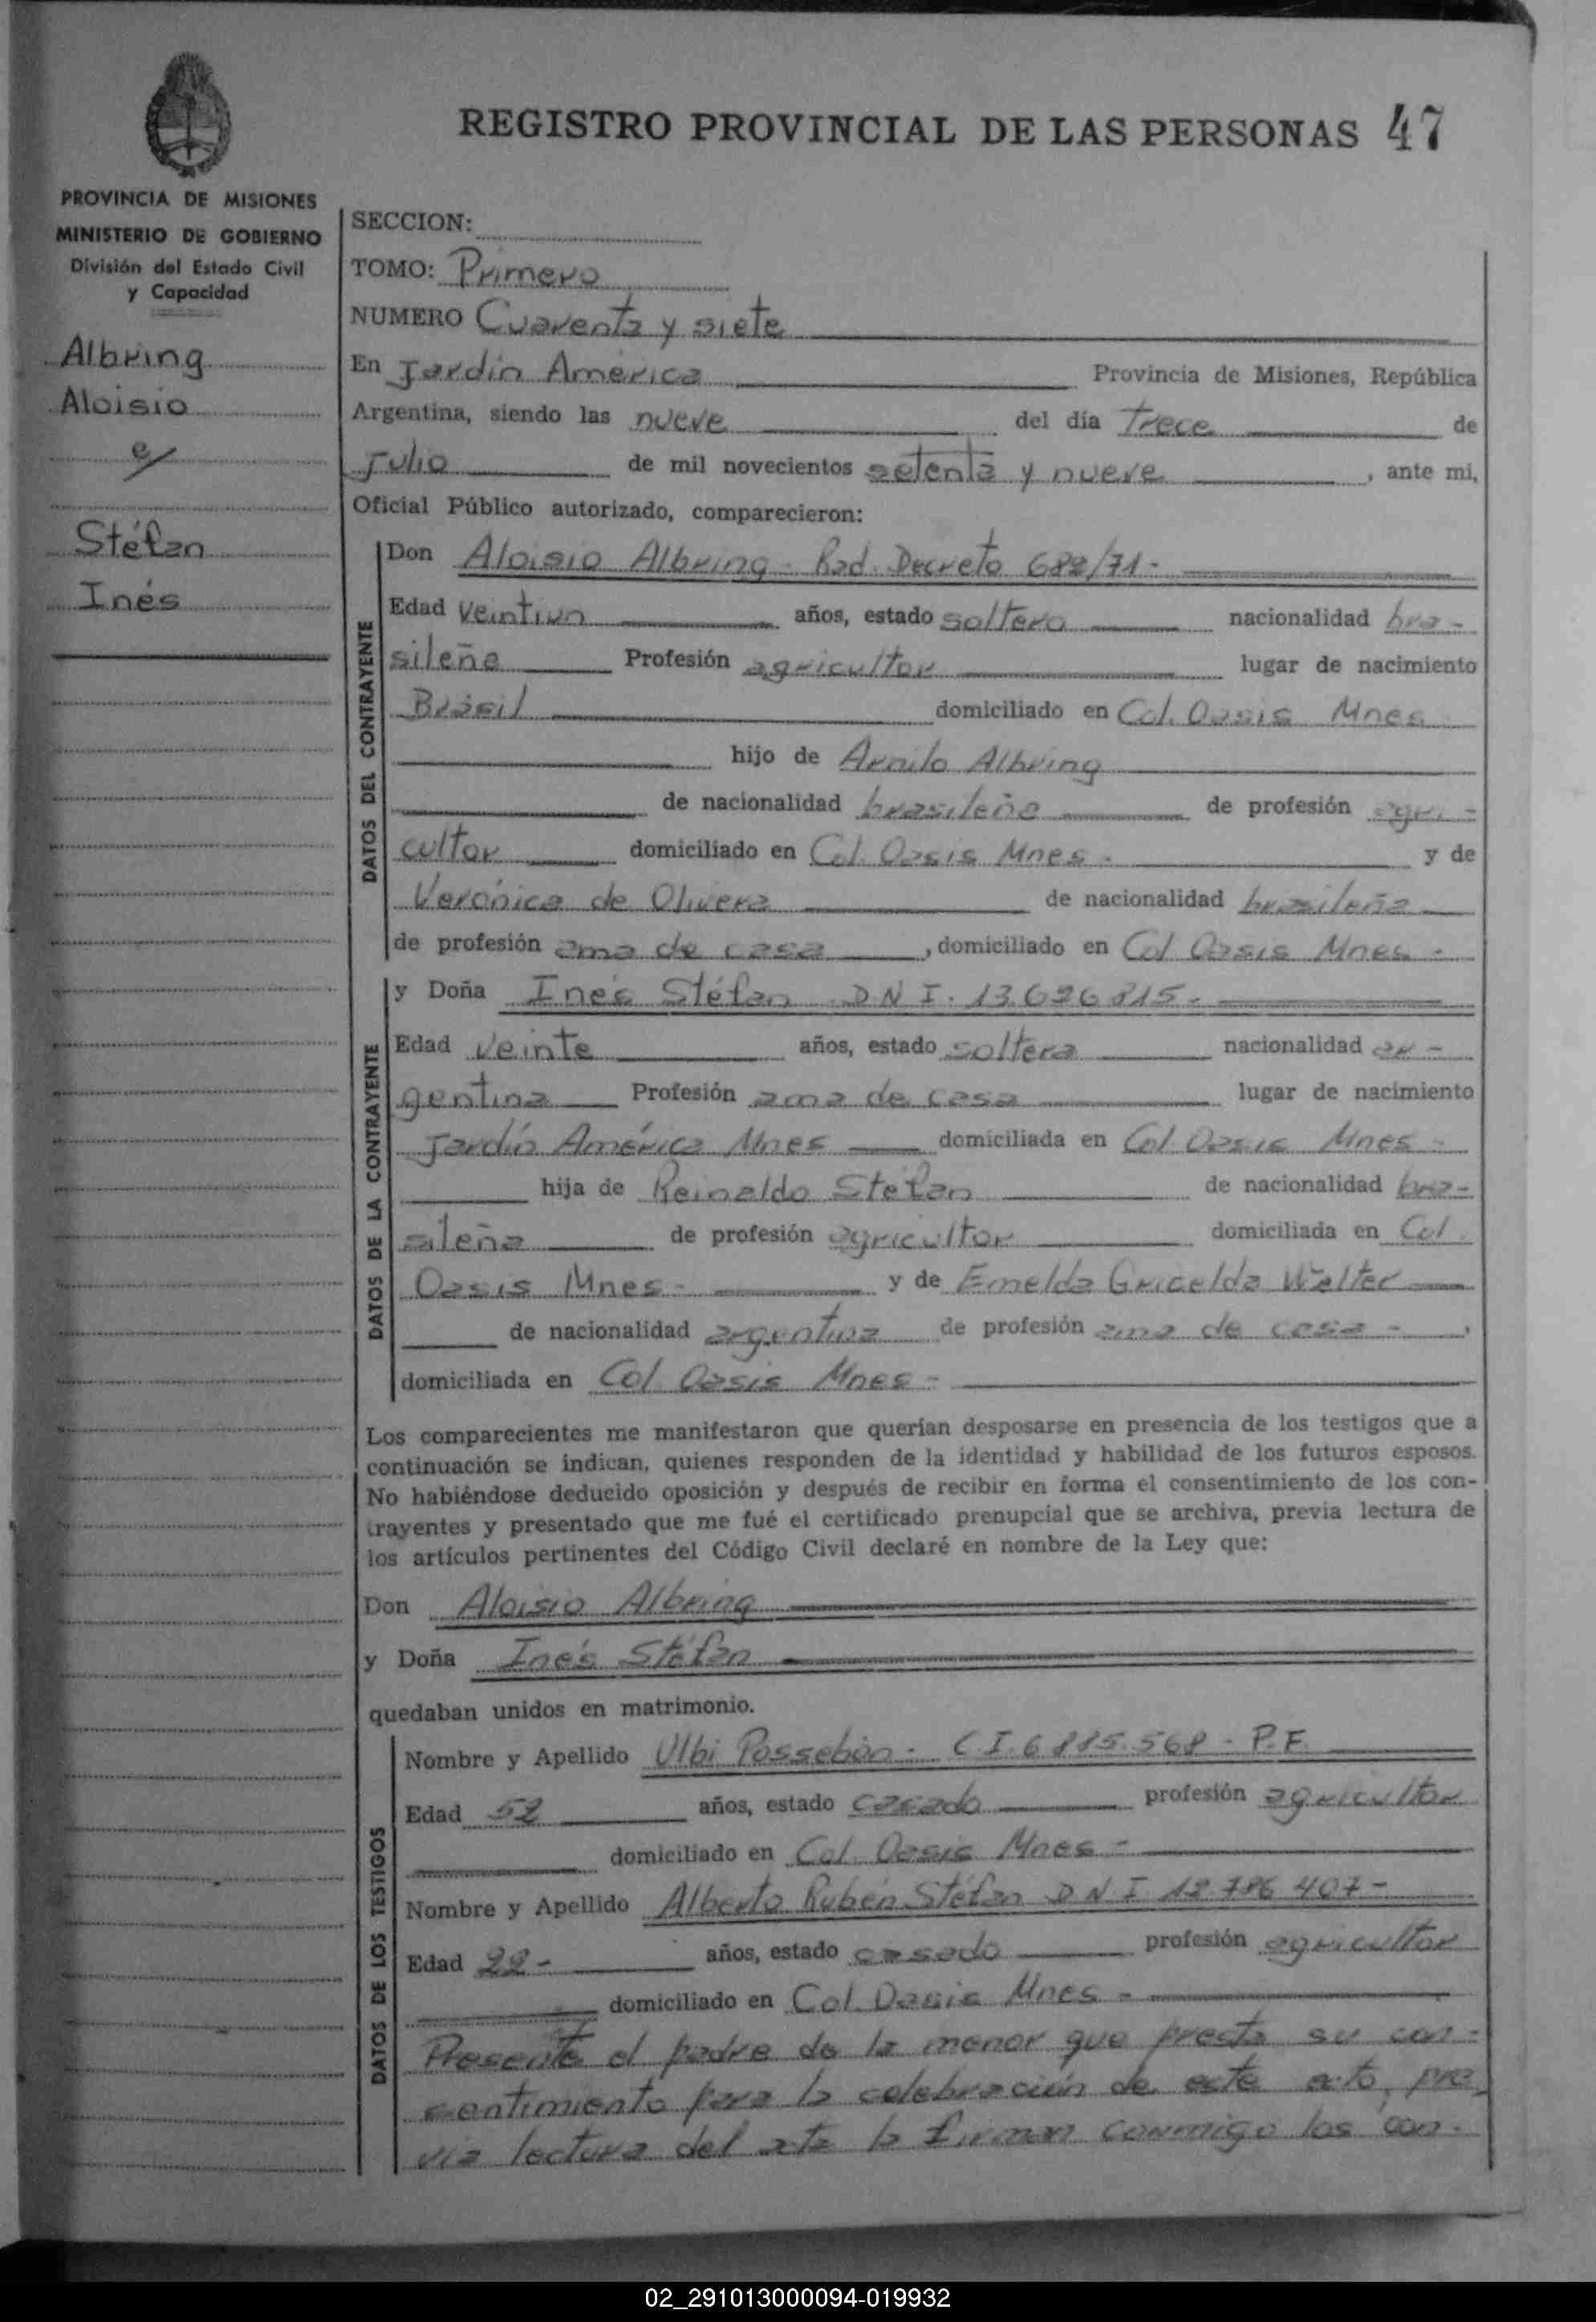 REGISTRO PROVINCIAL DE LAS PERSONAS 47
PROVINCIA DE MISIONES
MINISTERIO DE GOBIERNO
División del Estado Civil
y Capacidad
Albring
Aloisio
c/
Stéfan
Inés
SECCION:
TOMO: Primero
NUMERO Cuarenta y siete
En Jardín América Provincia de Misiones, República
Argentina, siendo las nueve del día trece de
Julio de mil novecientos setenta y nueve, ante mi,
Oficial Público autorizado, comparecieron:
DATOS DEL CONTRAYENTE
Don Aloisio Albring - Rad. Decreto 682/71-
Edad veintiun años, estado soltero nacionalidad bra-
sileña Profesión agricultor lugar de nacimiento
Brasil domiciliado en Col. Oasis Mnes
hijo de Arnilo Albring
de nacionalidad brasileña de profesión agri-
cultor domiciliado en Col. Oasis Mnes. y de
Verónica de Olivera de nacionalidad brasileña
de profesión ama de casa, domiciliado en Col Oasis Mnes -
DATOS DE LA CONTRAYENTE
y Doña Inés Stéfan DNI. 13.626.815-
Edad veinte años, estado soltera nacionalidad ar-
gentina Profesión ama de casa lugar de nacimiento
Jardín América Mnes domiciliada en Col. Oasis Mnes -
hija de Reinaldo Stéfan de nacionalidad bra-
sileña de profesión agricultor domiciliada en Col.
Oasis Mnes- y de Emelda Gricelda Welter
de nacionalidad argentina de profesión ama de casa - ,
domiciliada en Col Oasis Mnes -
Los comparecientes me manifestaron que querían desposarse en presencia de los testigos que a
continuación se indican, quienes responden de la identidad y habilidad de los futuros esposos.
No habiéndose deducido oposición y después de recibir en forma el consentimiento de los con-
trayentes y presentado que me fué el certificado prenupcial que se archiva, previa lectura de
los artículos pertinentes del Código Civil declaré en nombre de la Ley que:
Don Aloisio Albring
y Doña Inés Stéfan
quedaban unidos en matrimonio.
DATOS DE LOS TESTIGOS
Nombre y Apellido Ulbi Possebon - C.I. 6.815.568 - P.F.
Edad 52 años, estado casado profesión agricultor
domiciliado en Col. Oasis Mnes -
Nombre y Apellido Alberto Rubén Stéfan DNI 12.786.407-
Edad 22- años, estado casado profesión agricultor
domiciliado en Col. Oasis Mnes -
Presente el padre de la menor que presta su con-
sentimiento para la celebración de este acto, pre
via lectura del acta la firman conmigo los con-
02_291013000094-019932